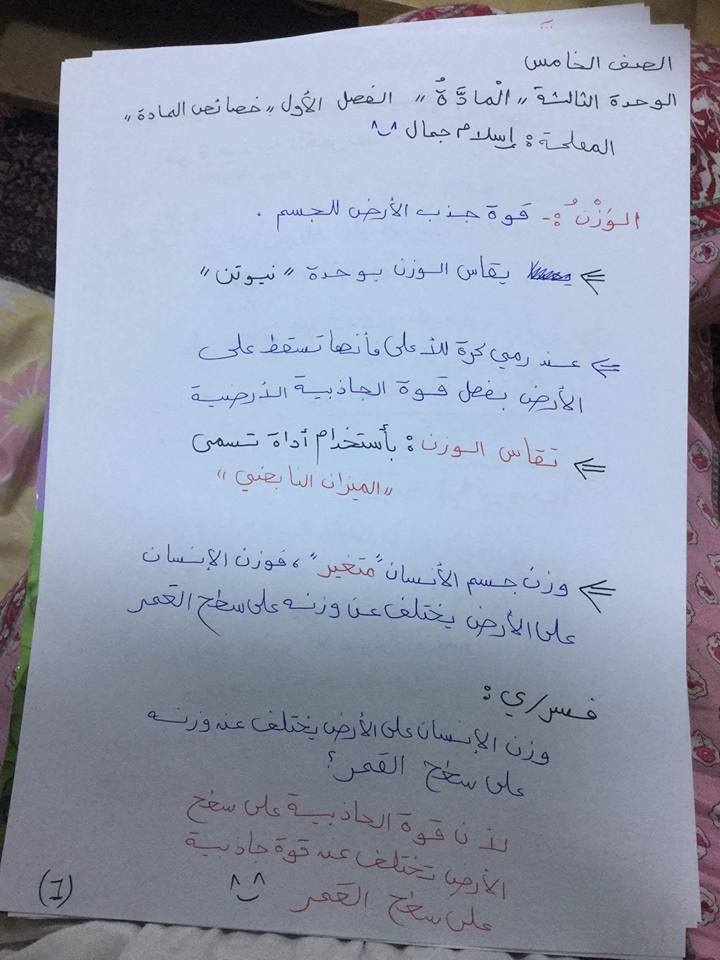 الصف الخامس
الوحدة الثالثة "الْمادَّةُ" الفصل الأول "خصائص المادة"
المعلمة : إسلام جمال ^ں^
الوَزْنُ :- قوة جذب الأرض للجسم .
⇐ يقاس الوزن بوحدة "نيوتن"
⇐ عند رمي كرة للأعلى فأنها تسقط على
الأرض بفعل قوة الجاذبية الأرضية
⇐ تقاس الوزن : بأستخدام أداة تسمى
"الميزان النابضي"
⇐ وزن جسم الأنسان "متغير" ، فوزن الإنسان
على الأرض يختلف عن وزنه على سطح القمر
فسر/ي :
وزن الإنسان على الأرض يختلف عن وزنه
على سطح القمر؟
لأن قوة الجاذبية على سطح
الأرض تختلف عن قوة جاذبية
على سطح القمر ^ں^
(1)